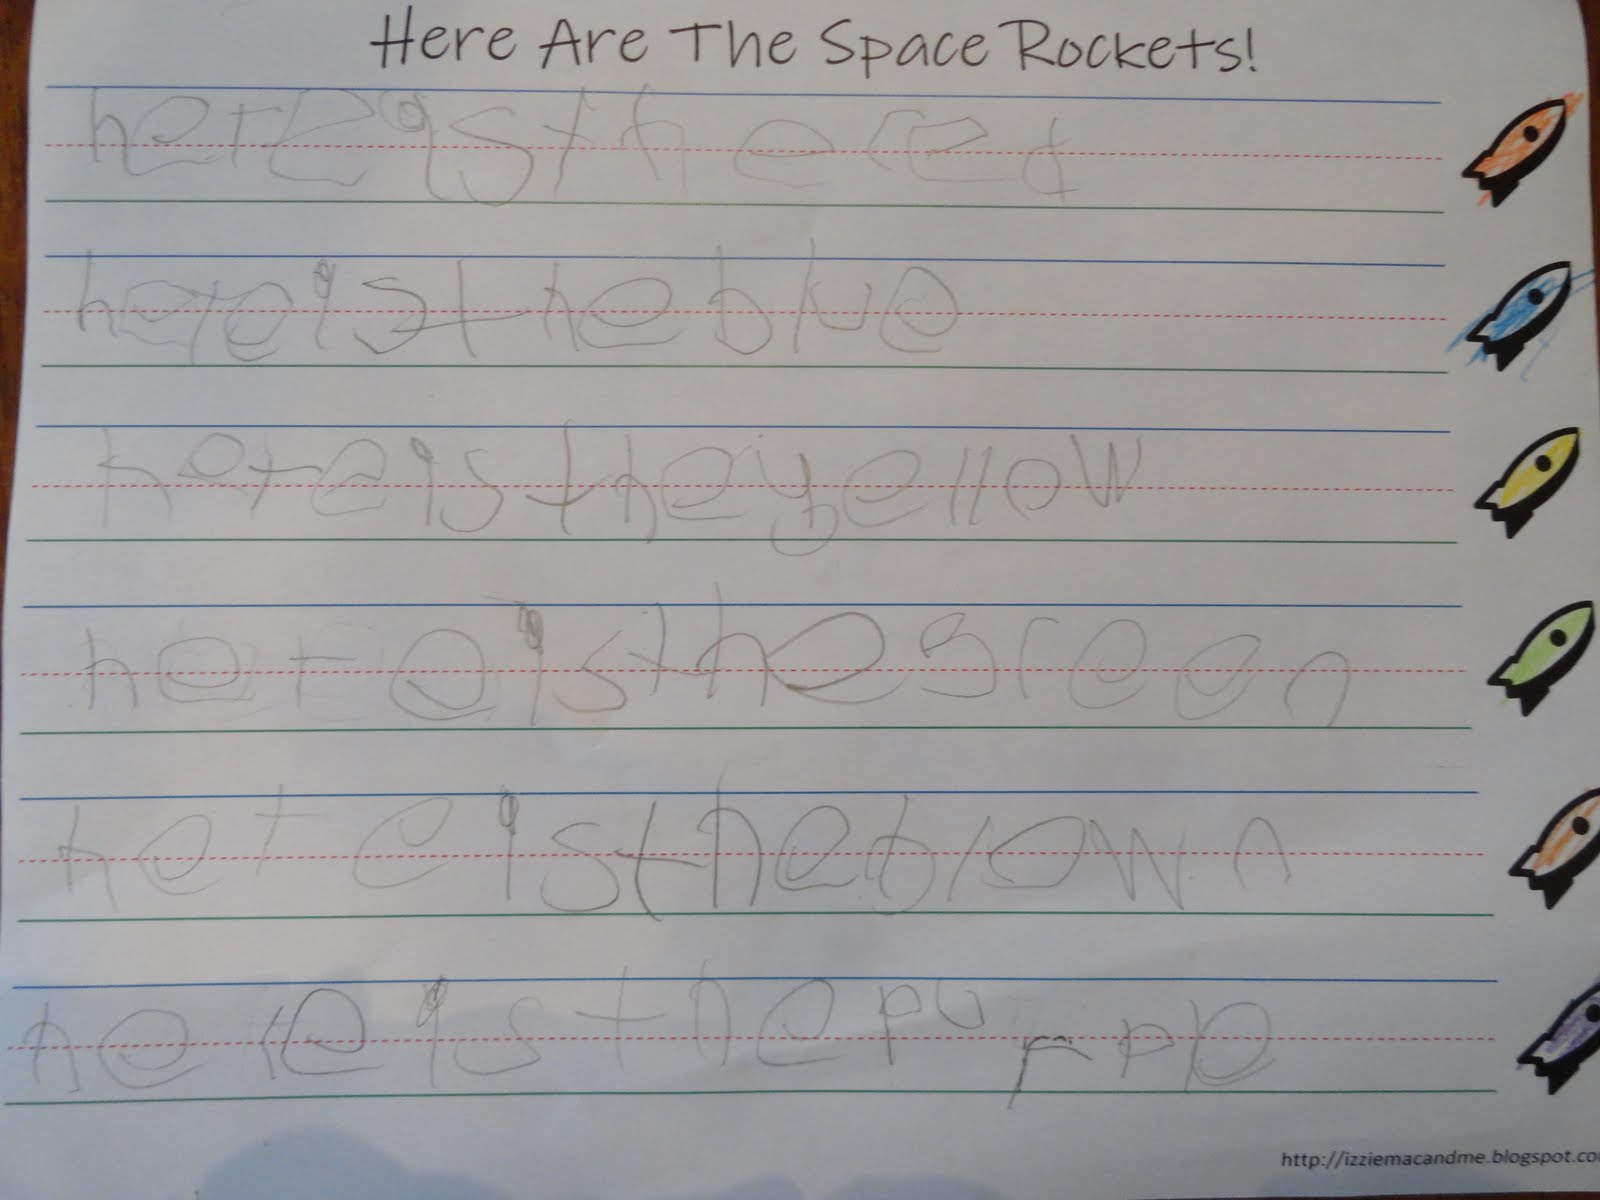 Here Are The Space Rockets!
here is the red
here is the blue
here is the yellow
here is the green
here is the brown
here is the purpp
http://izziemacandme.blogspot.co